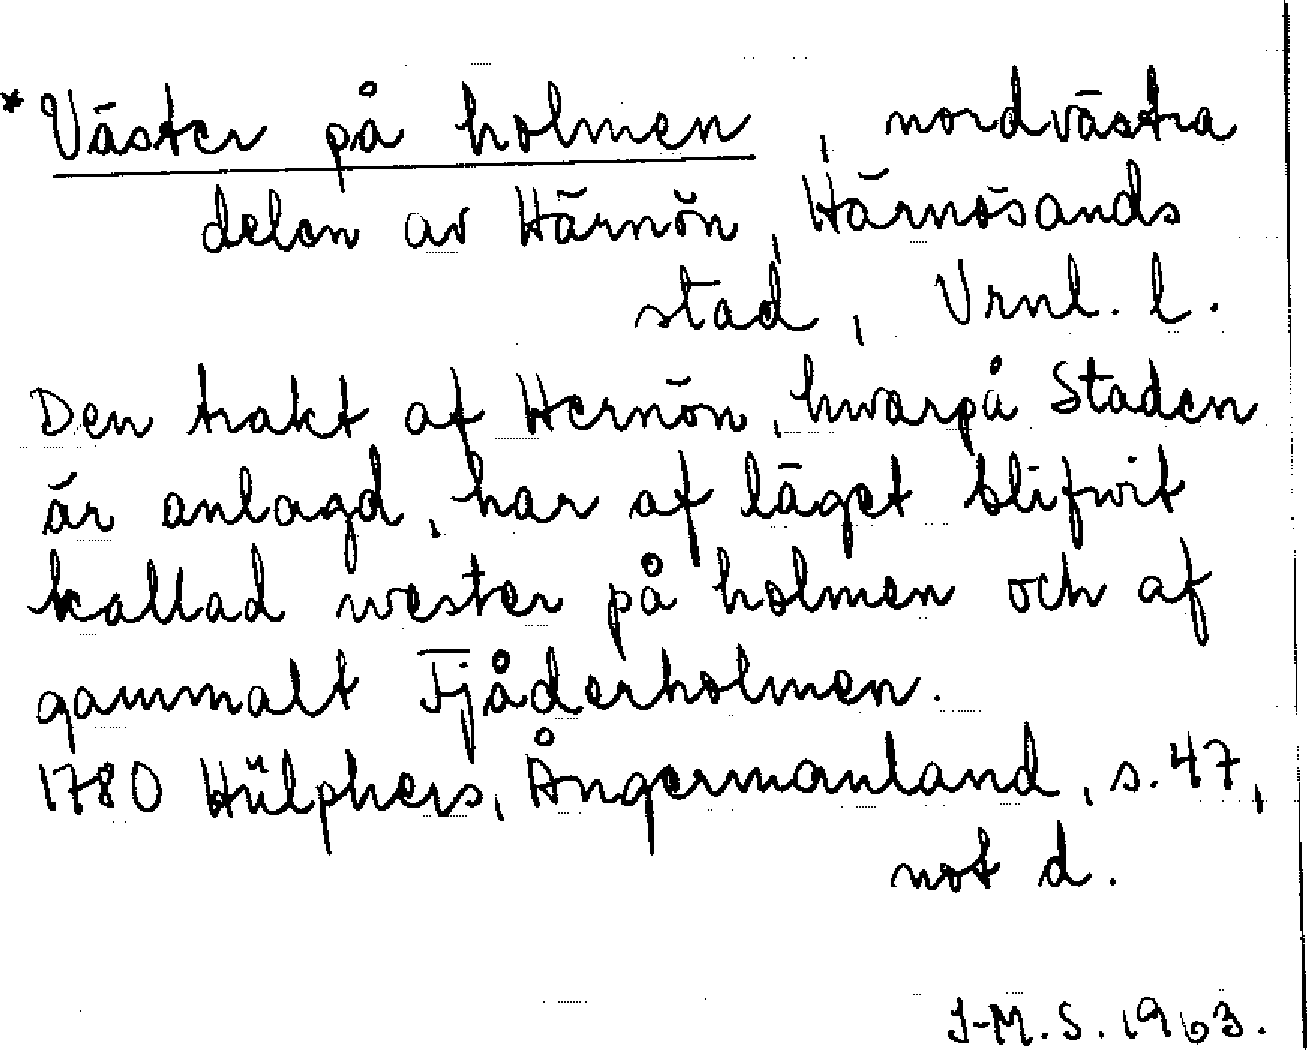 *Väster på holmen, nordvästra
delen av Härnön, Härnösands
stad, Vrnl. l.
Den trakt af Hernön, hwarpå Staden
är anlagd, har af läget blifwit
kallad wester på holmen och af
gammalt Fjåderholmen.
1780 Hülphers, Ångermanland, s. 47,
not d.
J-M.S. 1963.